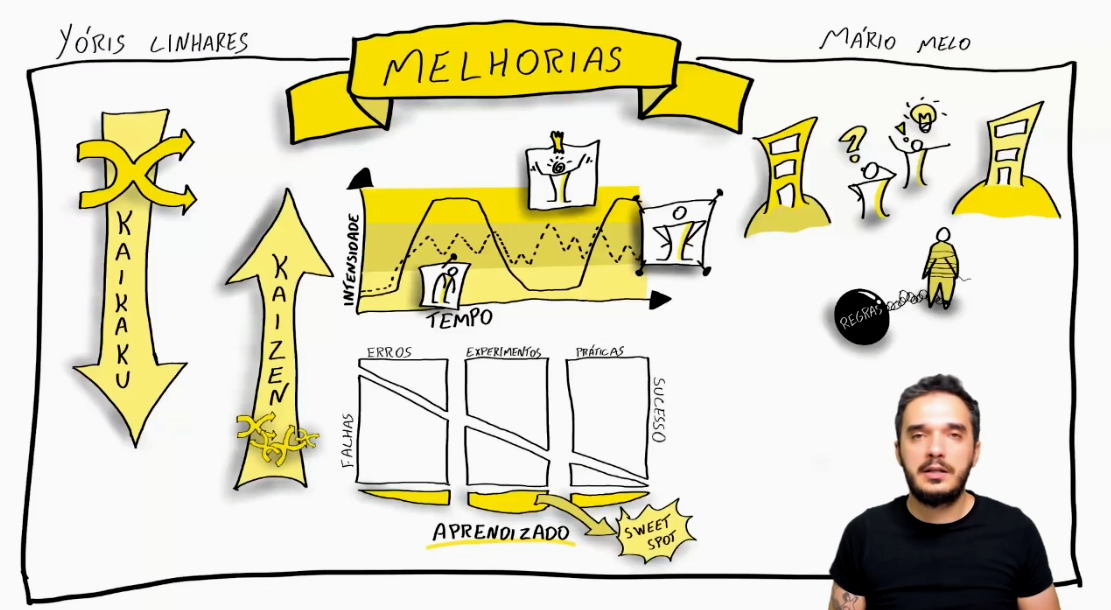 YÓRIS LINHARES
MELHORIAS
MÁRIO MELO
KAIKAKU
KAIZEN
INTENSIDADE
TEMPO
?
!
M
REGRAS
ERROS
EXPERIMENTOS
PRÁTICAS
FALHAS
SUCESSO
APRENDIZADO
SWEET
SPOT